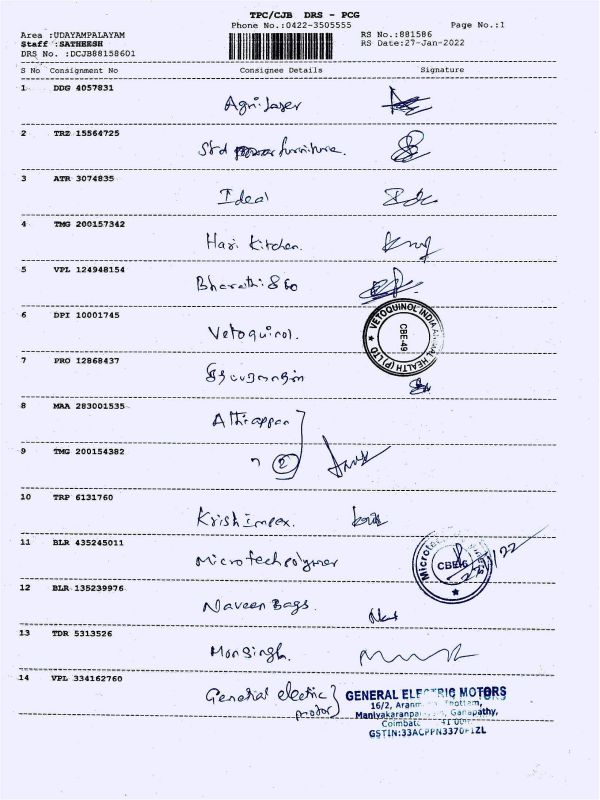 TPC/CJB DRS - PCG
Phone No.:0422-3505555
Page No.:1
Area :UDAYAMPALAYAM
Staff :SATHEESH
DRS No. :DCJB88158601
RS No.:881586
RS Date:27-Jan-2022
S No Consignment No Consignee Details Signature
1 DDG 4057831
Agri laser
2 TRZ 15564725
Std furniture.
3 ATR 3074835
Ideal
4 TMG 200157342
Hari Kitchen.
5 VPL 124948154
Bharathi 860
6 DPI 10001745
Vetoquinol.
VETOQUINOL INDIA ANIMAL HEALTH (P) LTD
CBE-49
7 PRO 12868437
8 MAA 283001535
Athiappan
9 TMG 200154382
" 2
10 TRP 6131760
Krish impex.
11 BLR 435245011
Microtech polymer
CBE-6
12 BLR 135239976
Naveen Bags.
13 TDR 5313526
Mansingh.
14 VPL 334162760
General electric
motor
GENERAL ELECTRIC MOTORS
16/2, Thottam,
Ganapathy,
GSTIN:33ACPPN3370F1ZL